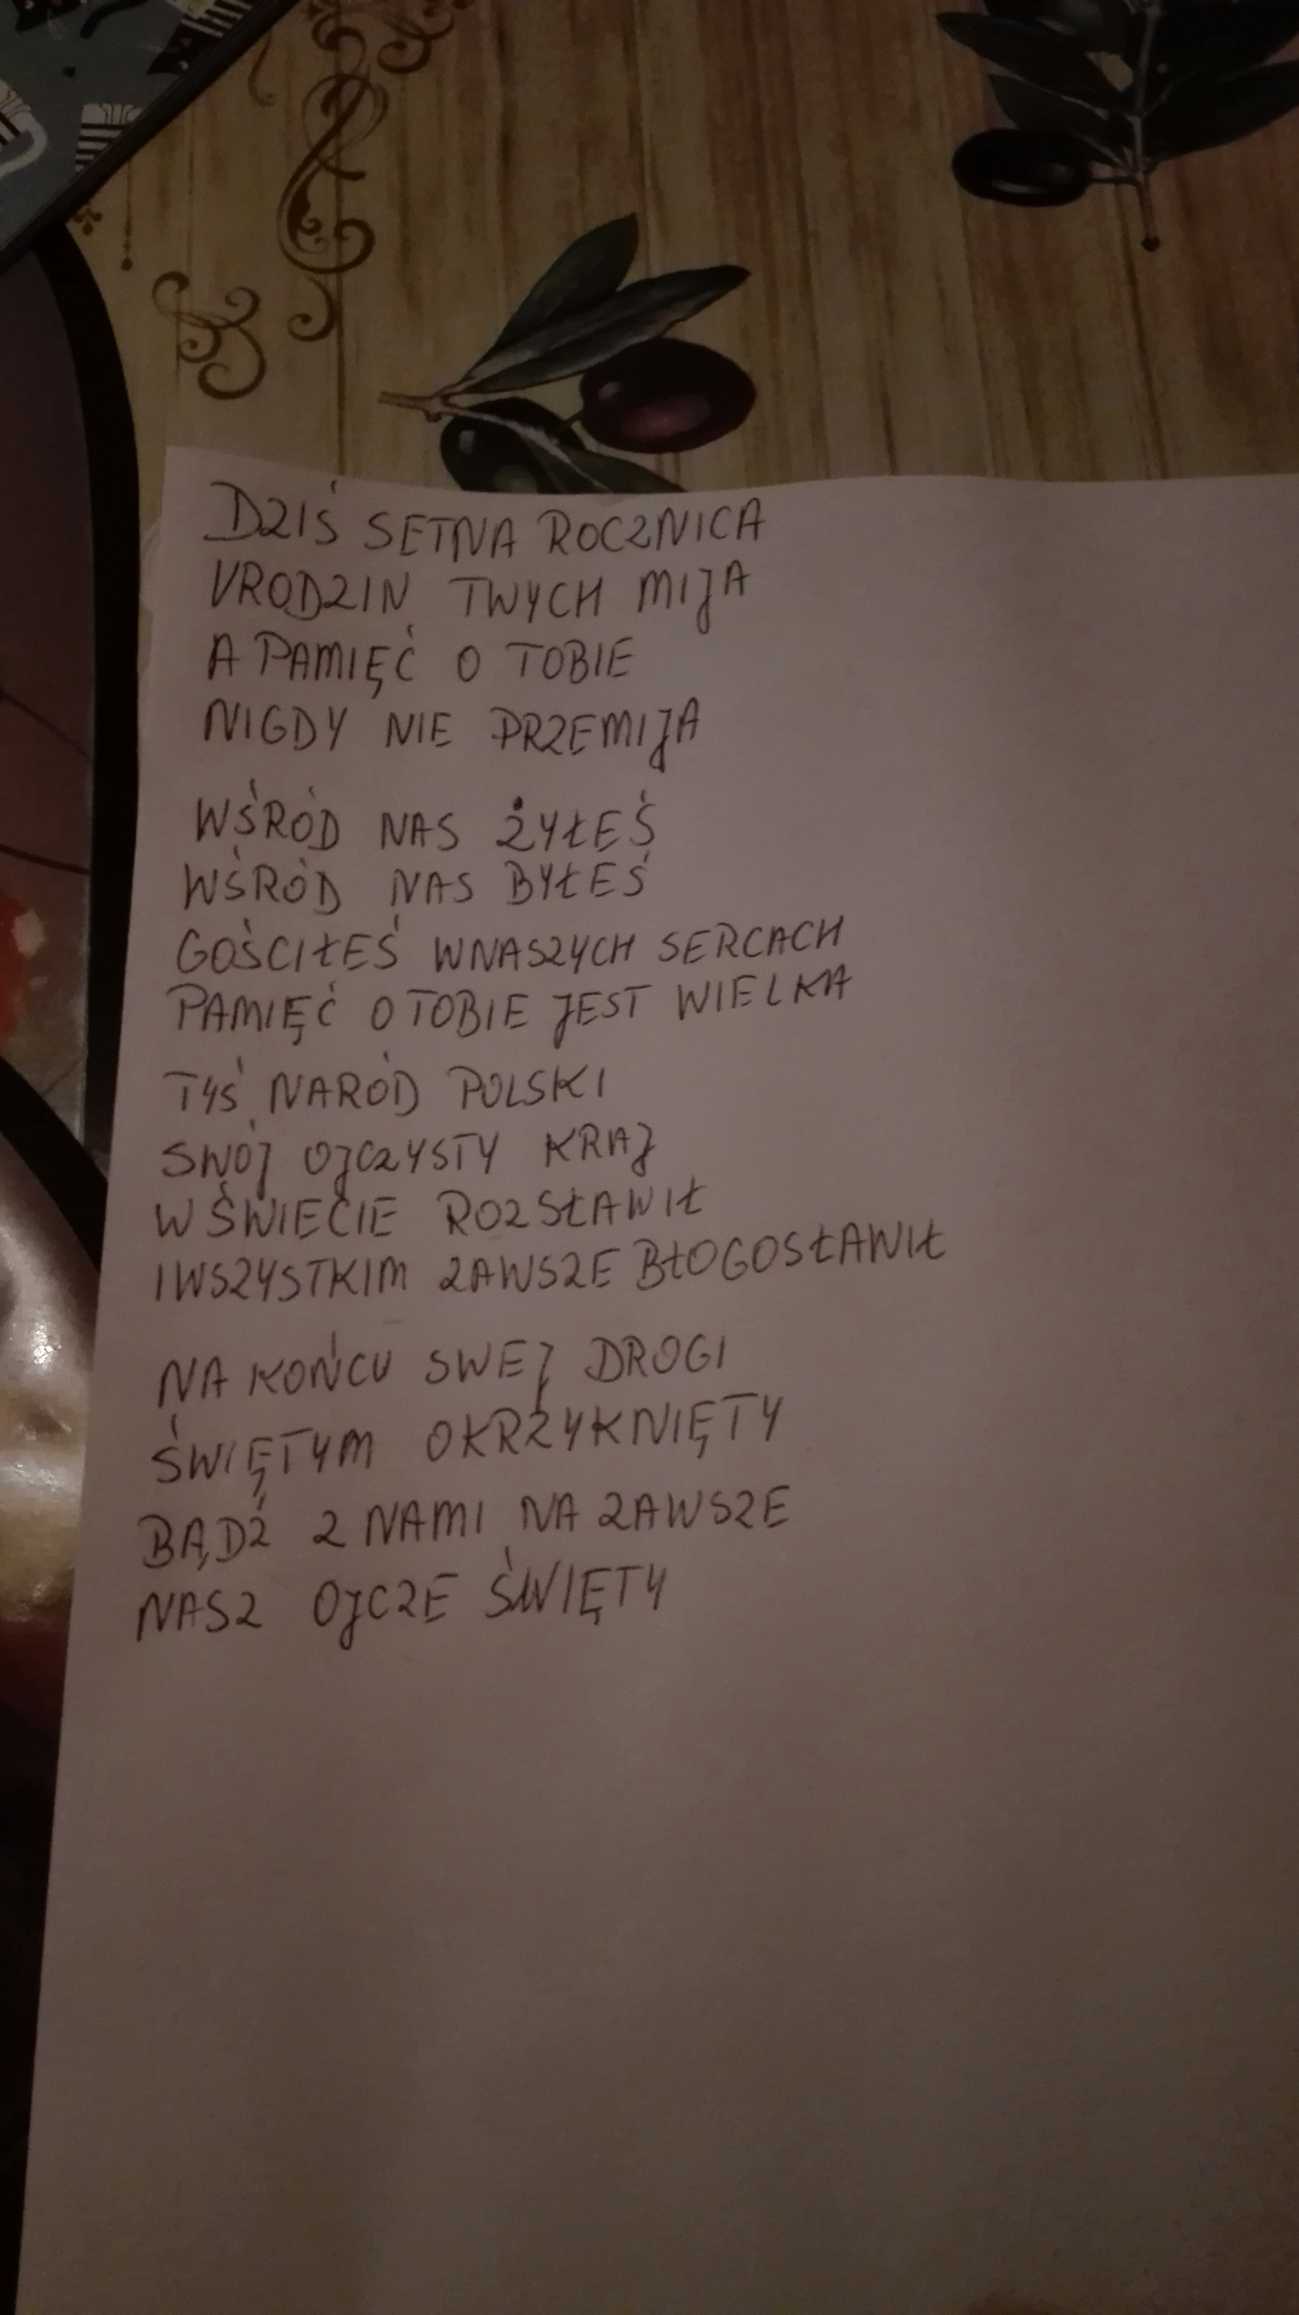 DZIŚ SETNA ROCZNICA
URODZIN TWYCH MIJA
A PAMIĘĆ O TOBIE
NIGDY NIE PRZEMIJA
WŚRÓD NAS ŻYŁEŚ
WŚRÓD NAS BYŁEŚ
GOŚCIŁEŚ WNASZYCH SERCACH
PAMIĘĆ O TOBIE JEST WIELKA
TYŚ NARÓD POLSKI
SWÓJ OJCZYSTY KRAJ
W ŚWIECIE ROZSŁAWIŁ
I WSZYSTKIM ZAWSZE BŁOGOSŁAWIŁ
NA KOŃCU SWEJ DROGI
ŚWIĘTYM OKRZYKNIĘTY
BĄDŹ Z NAMI NA ZAWSZE
NASZ OJCZE ŚWIĘTY